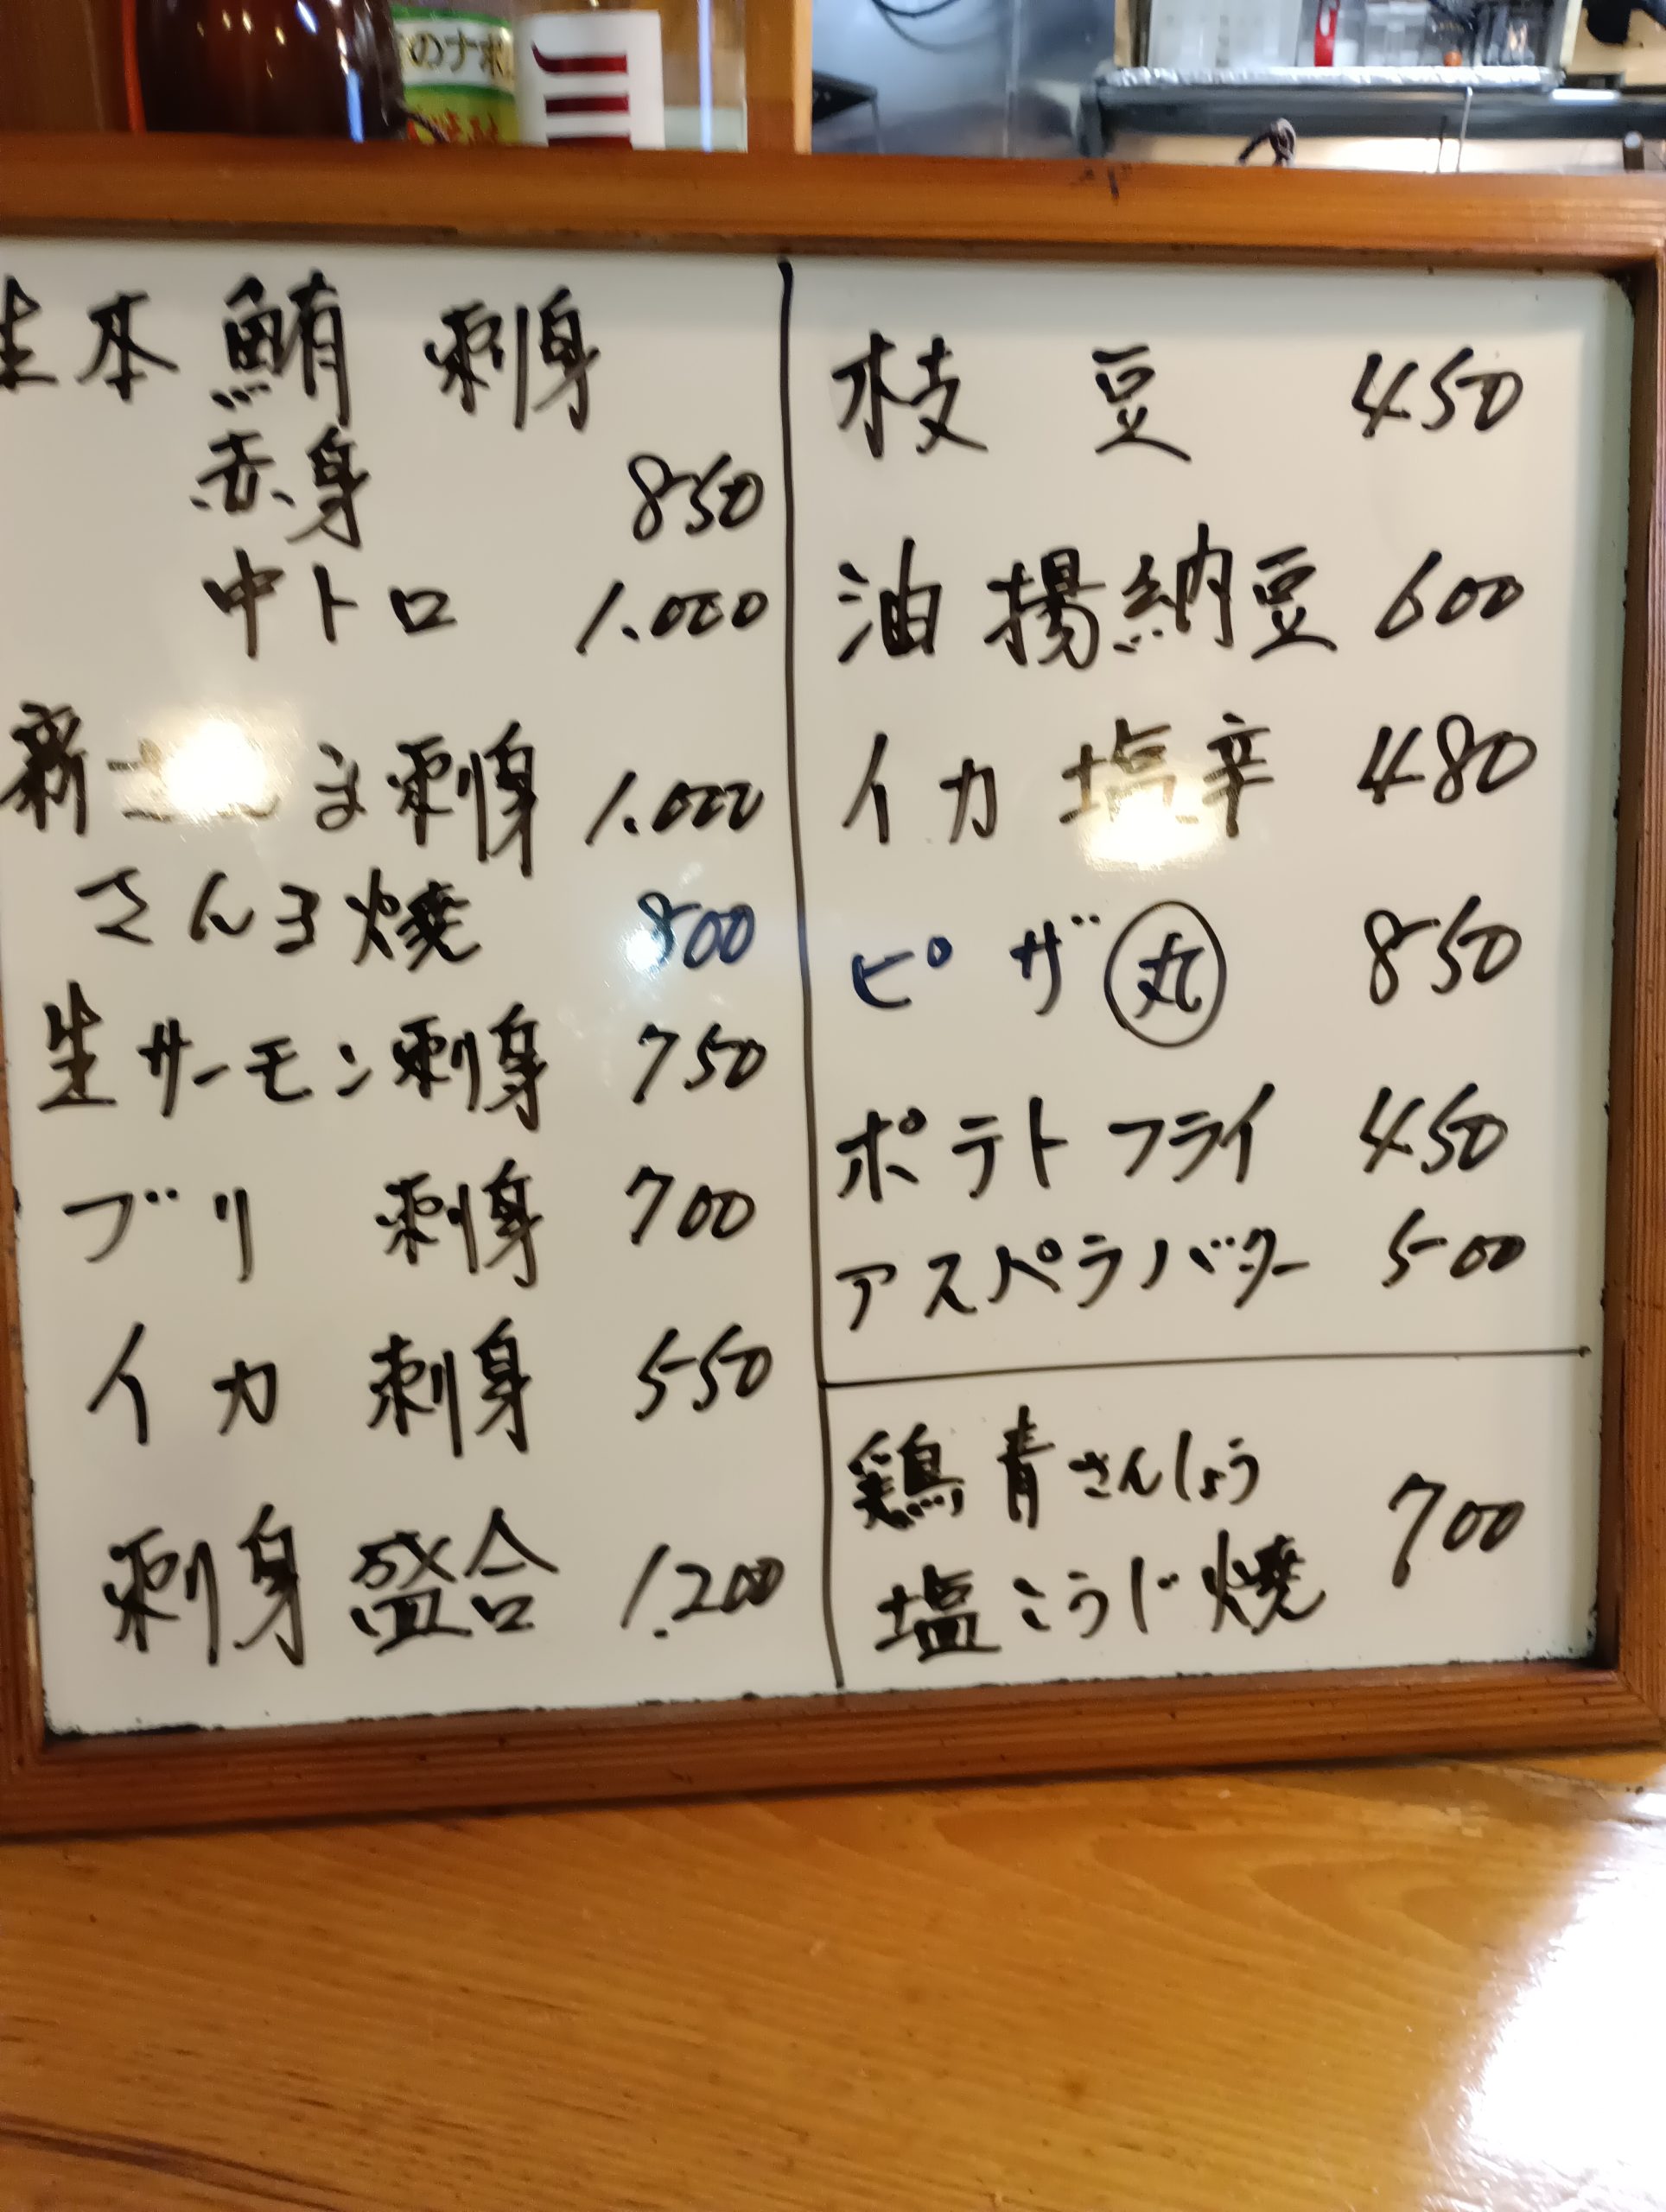 のナポ
生本鮪 刺身
赤身 850
中トロ 1.000
新さんま刺身 1.000
さんま焼 800
生サーモン刺身 750
ブリ 刺身 700
イカ 刺身 550
刺身盛合 1.200
枝豆 450
油揚納豆 600
イカ塩辛 480
ピザ丸 850
ポテトフライ 450
アスパラバター 500
鶏青さんしょう
塩こうじ焼 700